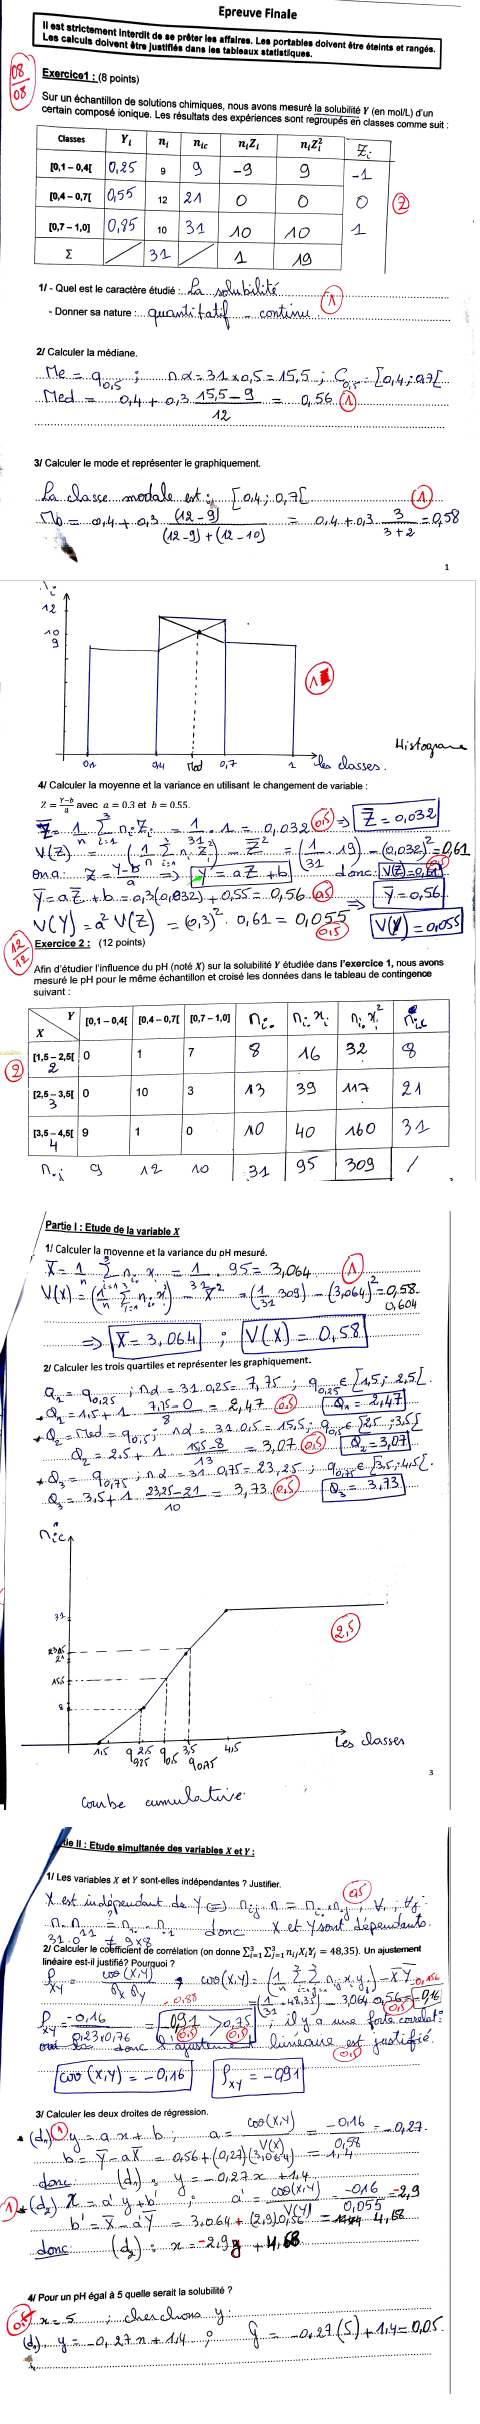 Epreuve Finale
Il est strictement interdit de se prêter les affaires. Les portables doivent être éteints et rangés.
Les calculs doivent être justifiés dans les tableaux statistiques.
08/08
Exercice1 : (8 points)
Sur un échantillon de solutions chimiques, nous avons mesuré la solubilité Y (en mol/L) d'un
certain composé ionique. Les résultats des expériences sont regroupés en classes comme suit :
Classes Yi ni nic niZi niZi² Zi
[0,1 – 0,4[ 0,25 9 9 -9 9 -1
[0,4 – 0,7[ 0,55 12 21 0 0 0 2
[0,7 – 1,0] 0,85 10 31 10 10 1
Σ / 31 / 1 19
1/ - Quel est le caractère étudié : La solubilité
- Donner sa nature : quantitatif - continu 1
2/ Calculer la médiane.
Me = q0,5 ; nα = 31 x 0,5 = 15,5 ; C0,5 = [0,4 ; 0,7[
Med = 0,4 + 0,3 (15,5 - 9)/12 = 0,56 1
3/ Calculer le mode et représenter le graphiquement.
La classe modale est : [0,4 ; 0,7[ 1
Mo = 0,4 + 0,3 (12-9)/((12-9)+(12-10)) = 0,4 + 0,3 3/(3+2) = 0,58
1
ni
12
10
9
1
0,1 0,4 Mod 0,7 1 les classes.
Histograme
4/ Calculer la moyenne et la variance en utilisant le changement de variable :
Z = (Y−b)/a avec a = 0.3 et b = 0.55.
Z̄ = 1/n Σ ni Zi = 1/31 . 1 = 0,032 0,5 => Z̄ = 0,032
V(Z) = (1/n Σ ni Zi²) - Z̄² = (1/31 . 19) - (0,032)² = 0,61
on a : Z = (Y-b)/a => Y = aZ + b donc : V(Z) = 0,61 0,5
Ȳ = a Z̄ + b = 0,3(0,032) + 0,55 = 0,56 0,5 => Ȳ = 0,56
V(Y) = a² V(Z) = (0,3)² . 0,61 = 0,055 0,5 V(Y) = 0,055
12/12
Exercice 2 : (12 points)
Afin d'étudier l'influence du pH (noté X) sur la solubilité Y étudiée dans l'exercice 1, nous avons
mesuré le pH pour le même échantillon et croisé les données dans le tableau de contingence
suivant :
X Y [0,1 – 0,4[ [0,4 – 0,7[ [0,7 – 1,0] ni. ni. xi ni. xi² nic
[1,5 – 2,5[ 2 0 1 7 8 16 32 8
2
[2,5 – 3,5[ 3 0 10 3 13 39 117 21
[3,5 – 4,5[ 4 9 1 0 10 40 160 31
n.j 9 12 10 31 95 309 /
Partie I : Etude de la variable X
1/ Calculer la moyenne et la variance du pH mesuré.
X̄ = 1/n Σ ni. xi = 1/31 . 95 = 3,064 1
V(X) = (1/n Σ ni. xi²) - X̄² = (1/31 309) - (3,064)² = 0,58
0,604
=> X̄ = 3,064 ; V(X) = 0,58
2/ Calculer les trois quartiles et représenter les graphiquement.
Q1 = q0,25 ; nα = 31 0,25 = 7,75 ; q0,25 ∈ [1,5 ; 2,5[
* Q1 = 1,5 + 1 (7,75 - 0)/8 = 2,47 0,5 Q1 = 2,47
* Q2 = Med = q0,5 ; nα = 31 0,5 = 15,5 ; q0,5 ∈ [2,5 ; 3,5[
Q2 = 2,5 + 1 (15,5 - 8)/13 = 3,07 0,5 Q2 = 3,07
* Q3 = q0,75 ; nα = 31 0,75 = 23,25 ; q0,75 ∈ [3,5 ; 4,5[
Q3 = 3,5 + 1 (23,25 - 21)/10 = 3,73 0,5 Q3 = 3,73
nic
31
23,25
21
15,5
8
2,5
1,5 q0,25 2,5 q0,5 3,5 q0,75 4,5 Les classes
3
courbe cumulative
tie II : Etude simultanée des variables X et Y :
1/ Les variables X et Y sont-elles indépendantes ? Justifier.
0,5
X est indépendant de Y <=> nij n = ni. n.j , ∀i ; ∀j
n. n11 = n1. n.1 donc X et Y sont dépendants.
31.0 ≠ 9x8
2/ Calculer le coefficient de corrélation (on donne Σ³i=1 Σ³j=1 nij Xi Yj = 48,35). Un ajustement
linéaire est-il justifié? Pourquoi ?
ρXY = cov(X,Y)/(σX σY) , cov(X,Y) = (1/n ΣΣ nij xi yj) - X̄Ȳ -0,156
= (1/31 . 48,35) - 3,064 0,56 = -0,16
-0,88 0,5
ρXY = -0,16/(0,23x0,76) = -0,91 > 0,75 ; il y a une forte corrélat°
0,5 0,5
donc l'ajustement linéaire est justifié.
0,5
cov(X,Y) = -0,16 ρXY = -0,91
3/ Calculer les deux droites de régression.
* (d1) 1 y = a x + b ; a = cov(X,Y)/V(X) = -0,16/0,58 = -0,27
b = Ȳ - aX̄ = 0,56 + (0,27)(3,064) = 1,4
donc (d1) : y = -0,27x + 1,4
1 * (d2) x = a'y + b' ; a' = cov(X,Y)/V(Y) = -0,16/0,055 = -2,9
b' = X̄ - a'Ȳ = 3,064 + (2,9)0,56 = 4,68
donc : (d2) : x = -2,9y + 4,68
4/ Pour un pH égal à 5 quelle serait la solubilité ?
0,5 x = 5 ; cherchons y :
(d1) y = -0,27x + 1,4 ; ŷ = -0,27(5) + 1,4 = 0,05.